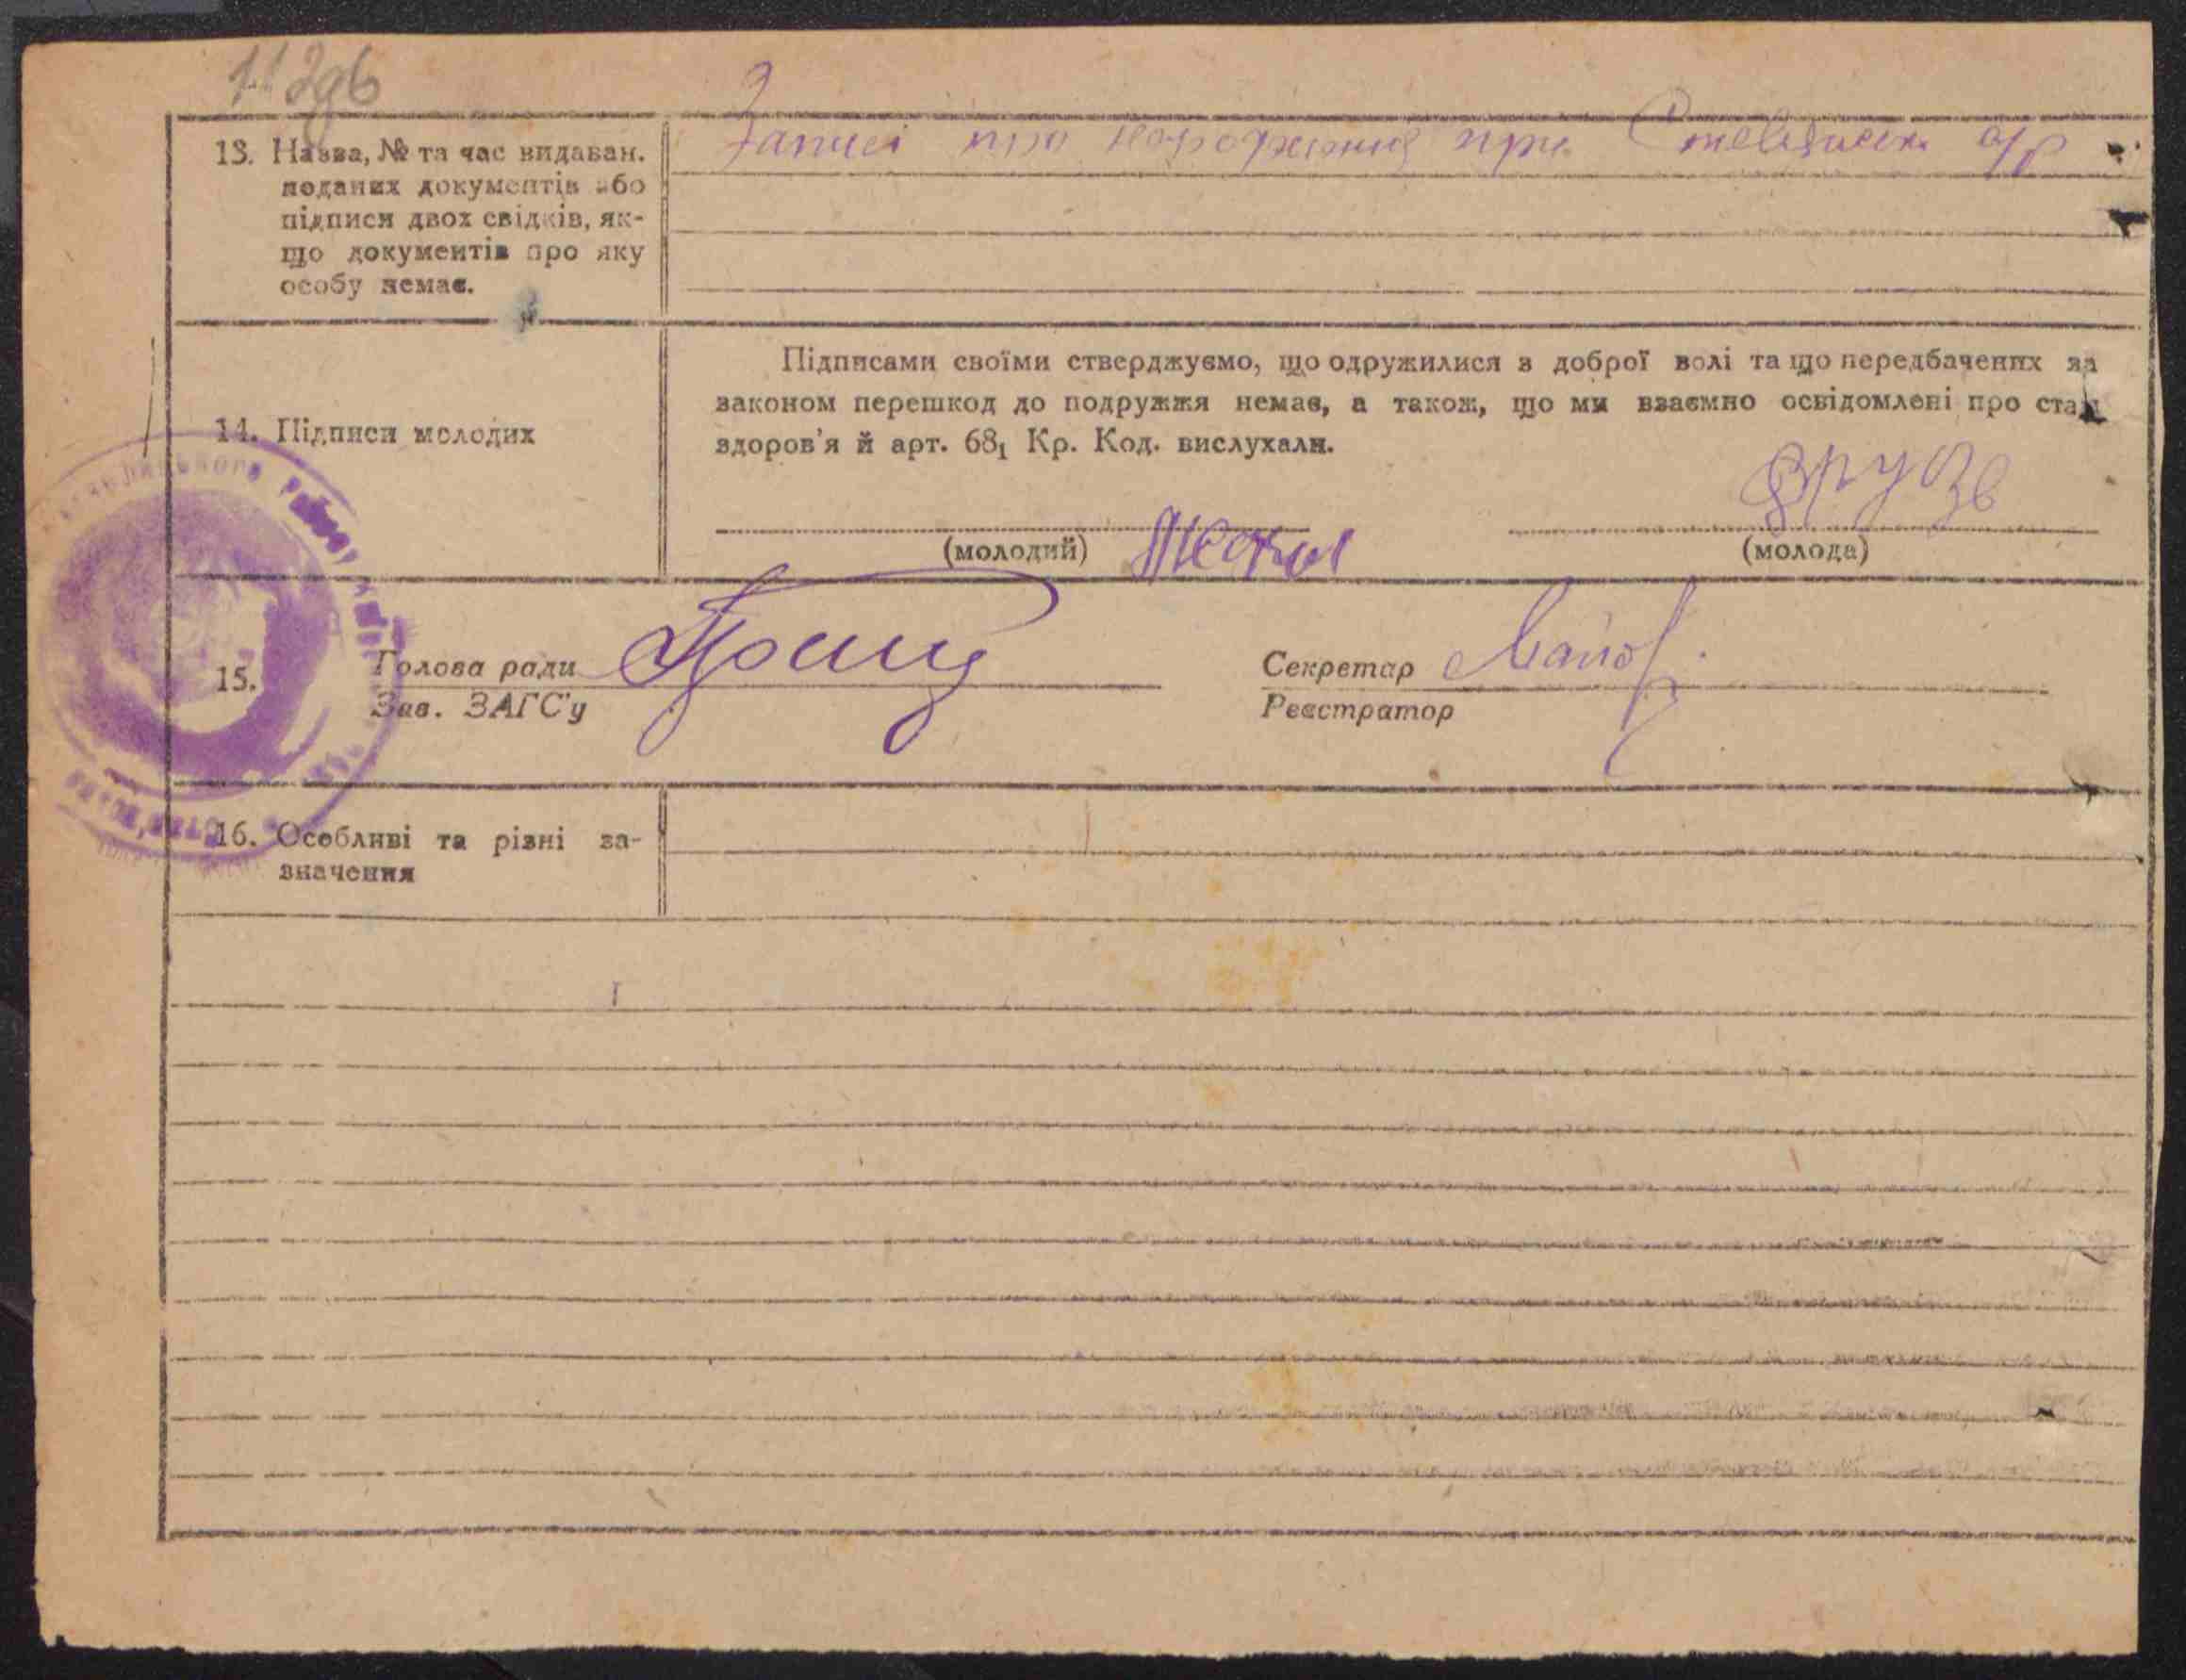 13. Назва, № та час видаван.
поданих документів або
підписи двох свідків, як-
що документів про яку
особу немає.
Записі про народження при с/р
14. Підписи молодих
Підписами своїми стверджуємо, що одружилися з доброї волі та що передбачених за
законом перешкод до подружжя немає, а також, що ми взаємно освідомлені про стан
здоров'я й арт. 68₁ Кр. Код. вислухали.
(молодий)
(молода)
15.
Голова ради
Зав. ЗАГС'у
Секретар
Реєстратор
16. Особливі та різні за-
значення